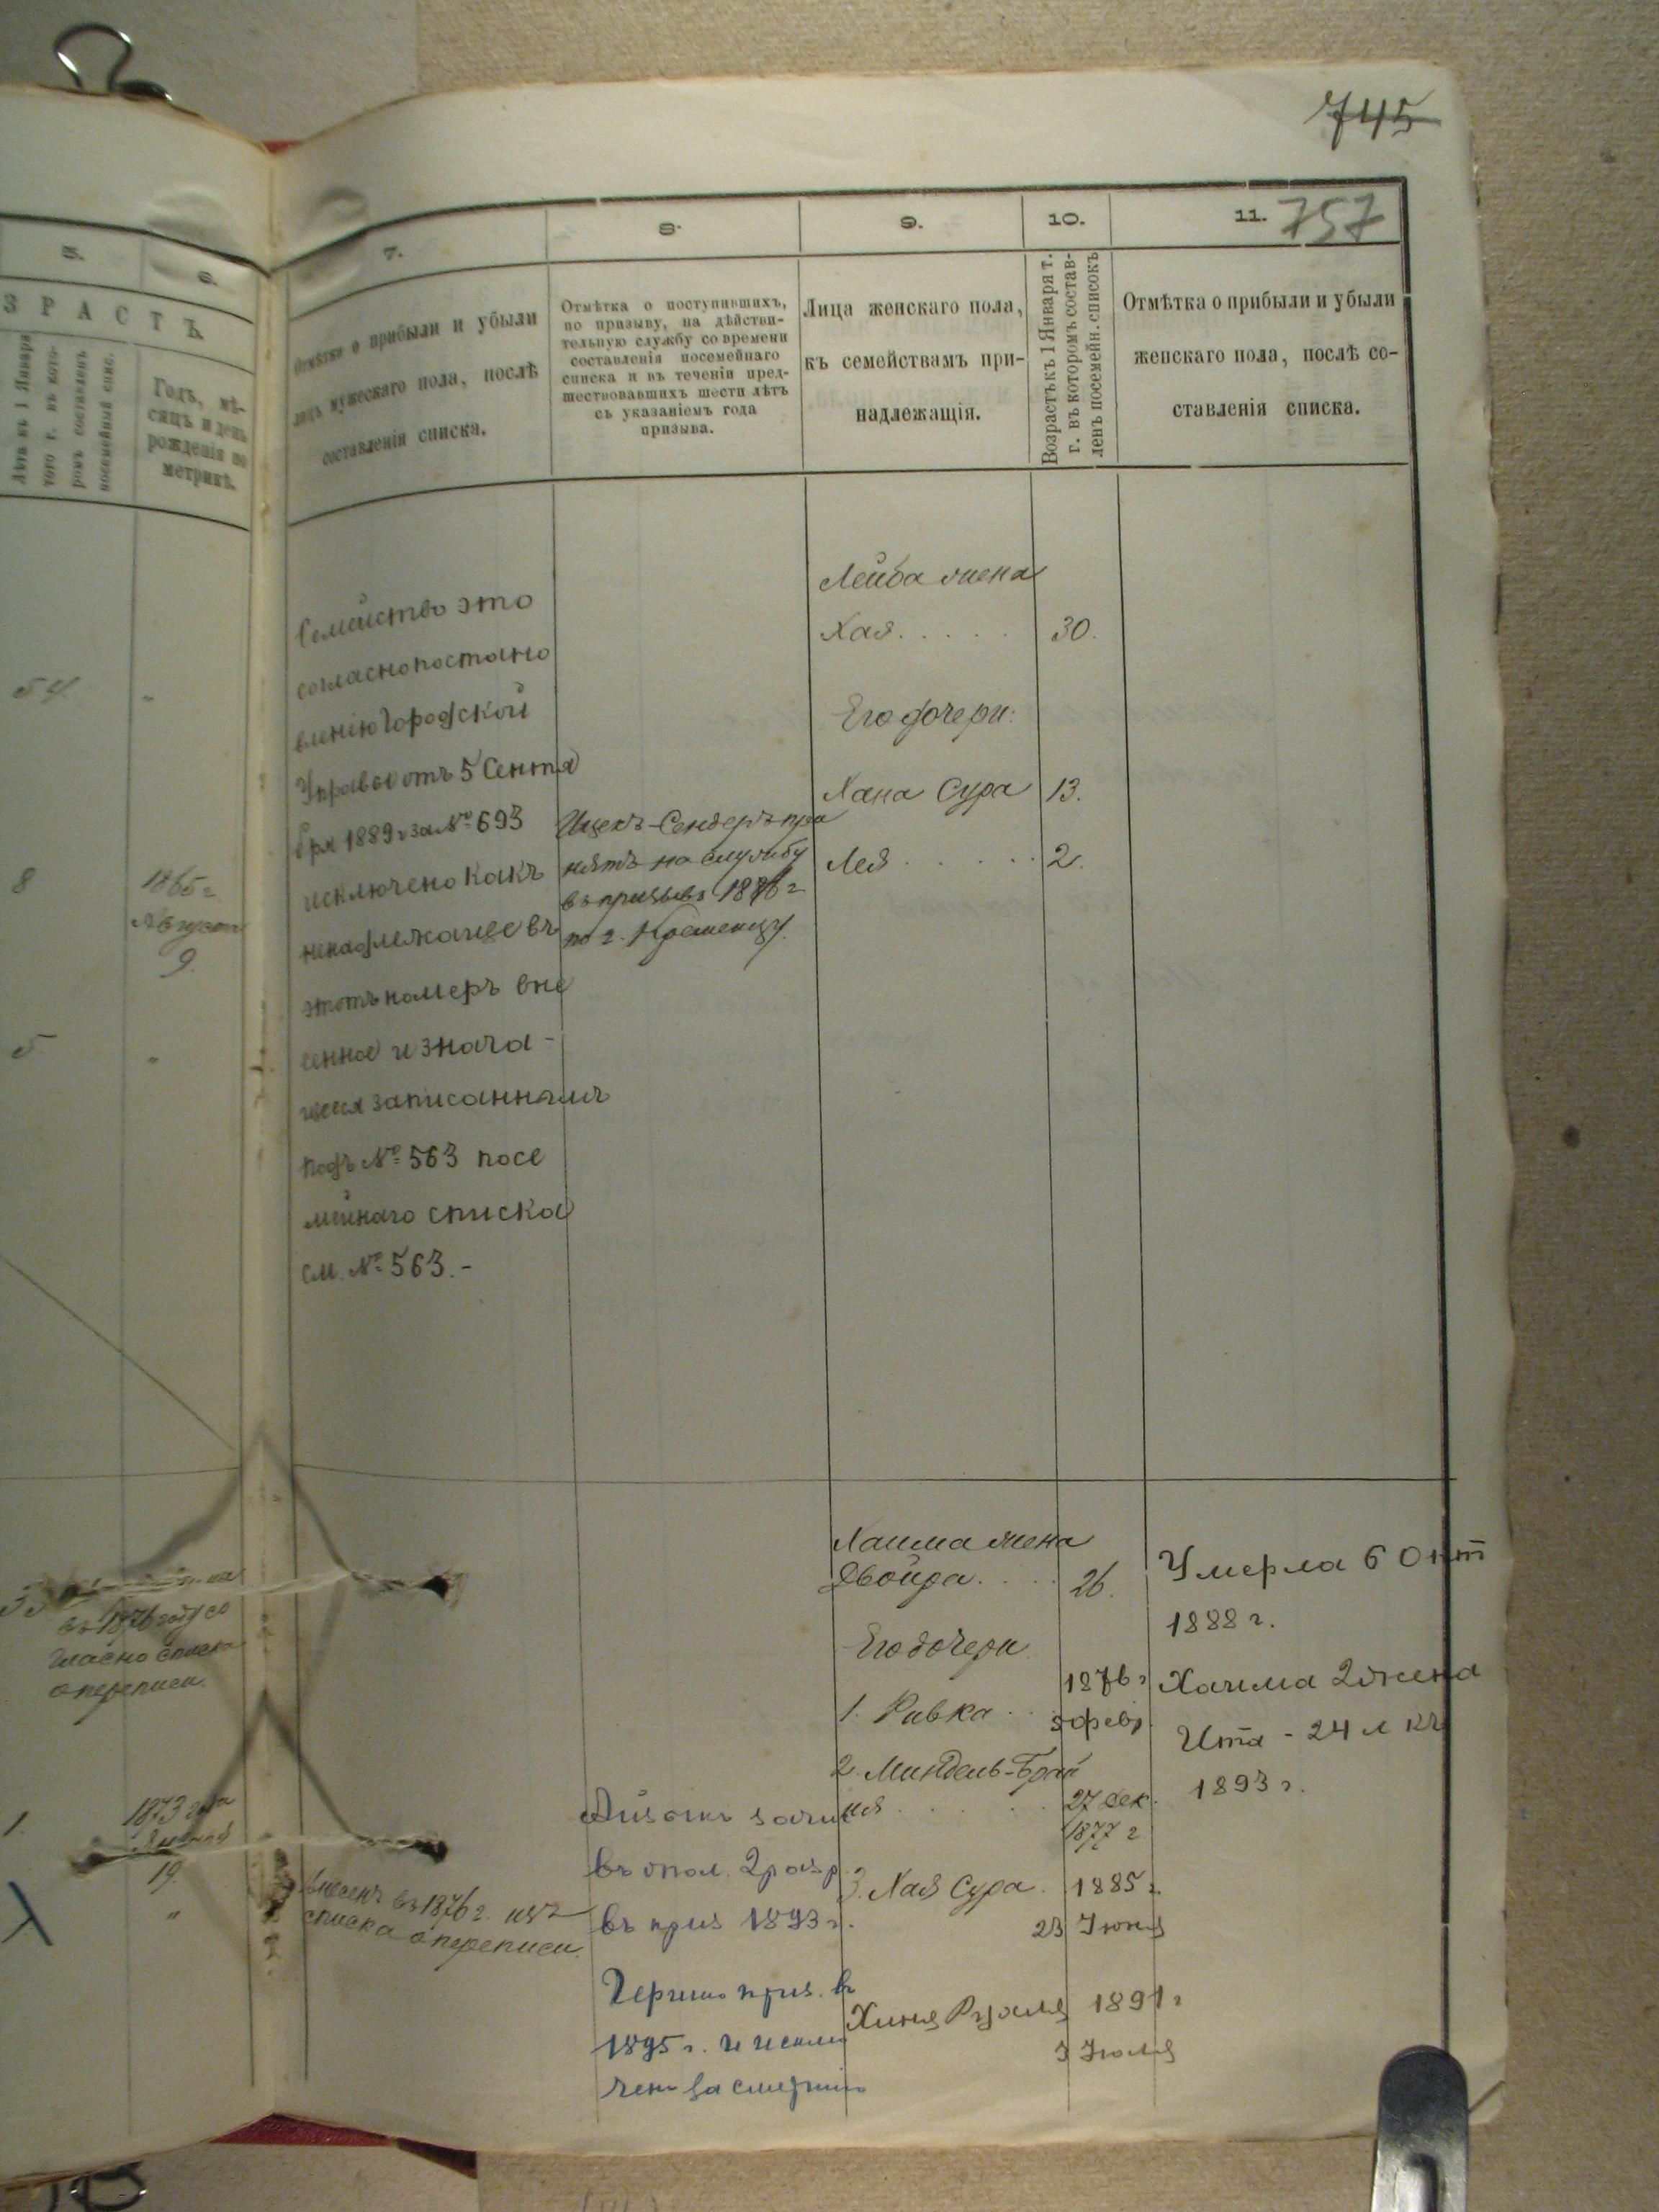 745
757
5.
6.
7.
8.
9.
10.
11.
ЗРАСТЪ
Лѣта къ 1 Января
того г. въ кото-
ромъ составленъ
посемейный спис.
Годъ, мѣ-
сяцъ и день
рожденія по
метрикѣ.
Отмѣтка о прибыли и убыли
лицъ мужескаго пола, послѣ
составленія списка.
Отмѣтка о поступившихъ,
по призыву, на дѣйстви-
тельную службу со времени
составленія посемейнаго
списка и въ теченіи пред-
шествовавшихъ шести лѣтъ
съ указаніемъ года
призыва.
Лица женскаго пола,
къ семействамъ при-
надлежащія.
Возрастъ къ 1 Января т.
г. въ которомъ состав-
ленъ посемейн. списокъ
Отмѣтка о прибыли и убыли
женскаго пола, послѣ со-
ставленія списка.
54
8
1865 г.
Августа
9.
5
Семейство это
согласно постано
вленію Городской
Управы отъ 5 Сентя
бря 1889 г за № 693
исключено какъ
ненадлежаще въ
этотъ номеръ вне
сенное и знача-
щееся записаннымъ
подъ № 563 посе
мейнаго списка
см. № 563.-
Ицекъ-Сендеръ при
нятъ на службу
въ призывъ 1886 г
по г. Кременцу.
Лейба жена
Хая..... 30.
Его дочери:
Хана Сура 13.
Лея...... 2.
въ 1876 году со
гласно списка
о переписи.
1.
1873 года
19.
внесенъ въ 1876 г. изъ
списка о переписи.
зачис
въ опол. 2 разр
въ приз 1893 г.
Гершко приз. въ
1895 г. и исклю
ченъ за смертію
Хаима жена
Двойра.... 26.
Его дочери
1. Ривка.. 1876 г
5 февр.
2. Миндель-Брай
ня...... 27 дек.
1877 г
3. Хая Сура. 1885 г.
23 Іюня
Хиня Рухля 1891 г
3 Іюля
Умерла 6 Окт
1888 г.
Хаима 2 жена
Ита - 24 л къ
1893 г.